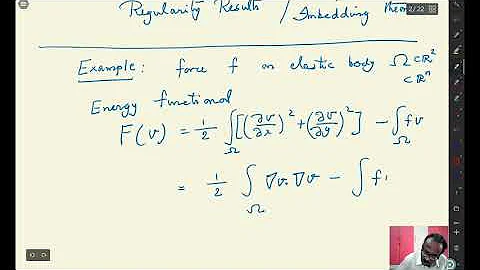 Regularity Results / Imbedding Theo
2/22
Example: force f on elastic body Ω ⊂ ℝ²
⊂ ℝⁿ
Energy functional
F(v) = 1/2 ∫_Ω [(∂v/∂x)² + (∂v/∂y)²] - ∫_Ω fv
= 1/2 ∫_Ω ∇v.∇v - ∫ f